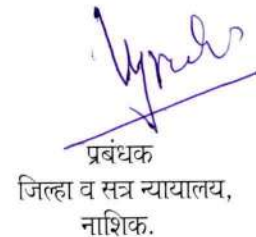 प्रबंधक
जिल्हा व सत्र न्यायालय,
नाशिक.